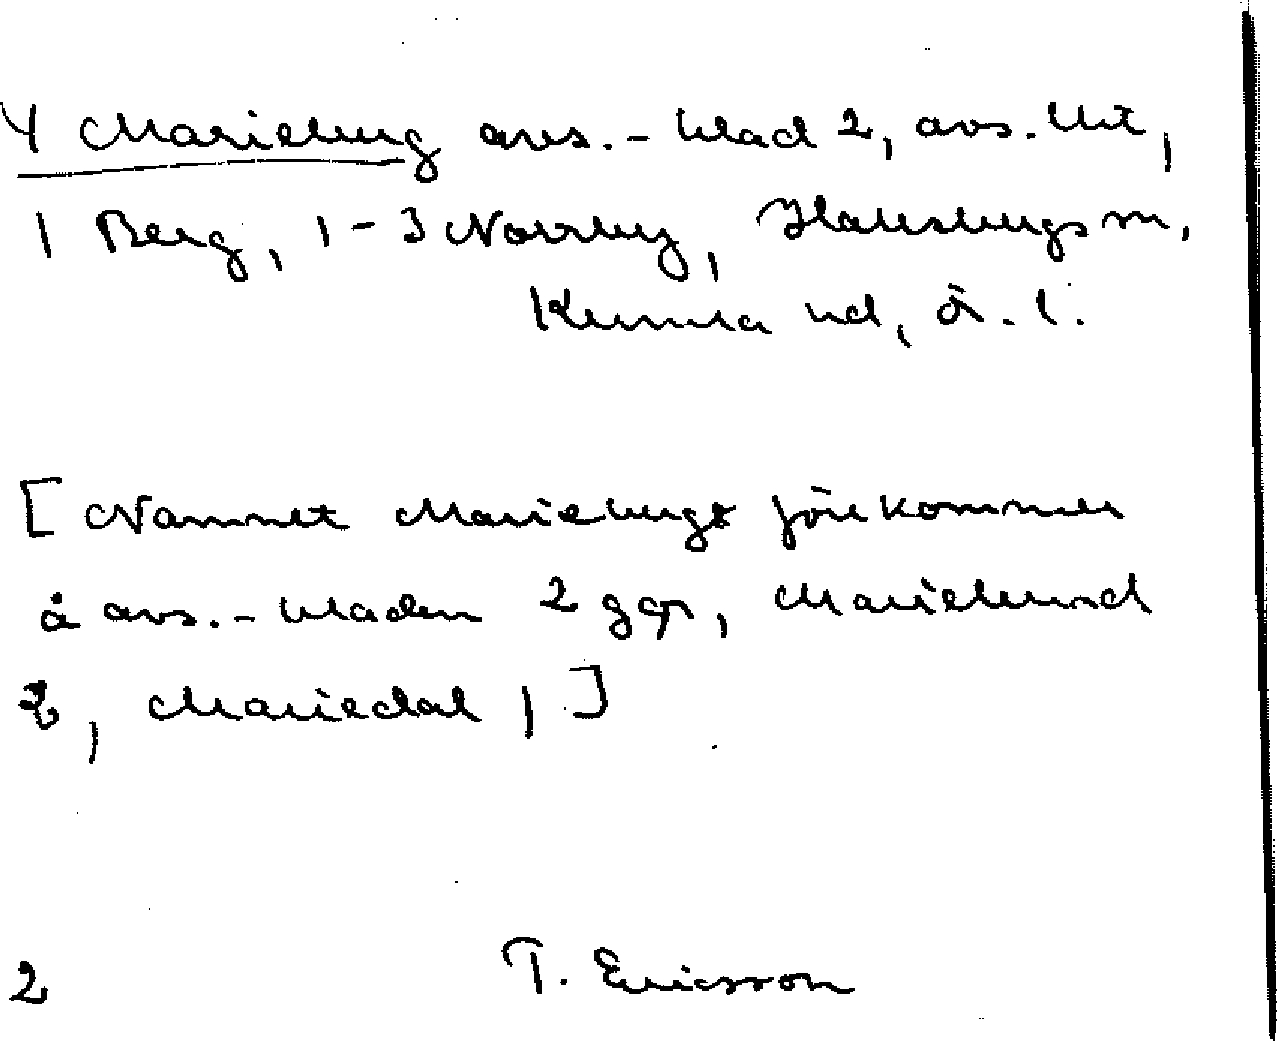 4 Marieberg avs. - blad 2, avs. till,
1 Berg, 1-3 Norrby, Hallsbergs sn,
Kumla hd, Ö. l.
[Namnet Marieberg förekommer
å avs. - bladen 2 ggr, Marielund
2, Mariedal 1]
2 T. Ericsson